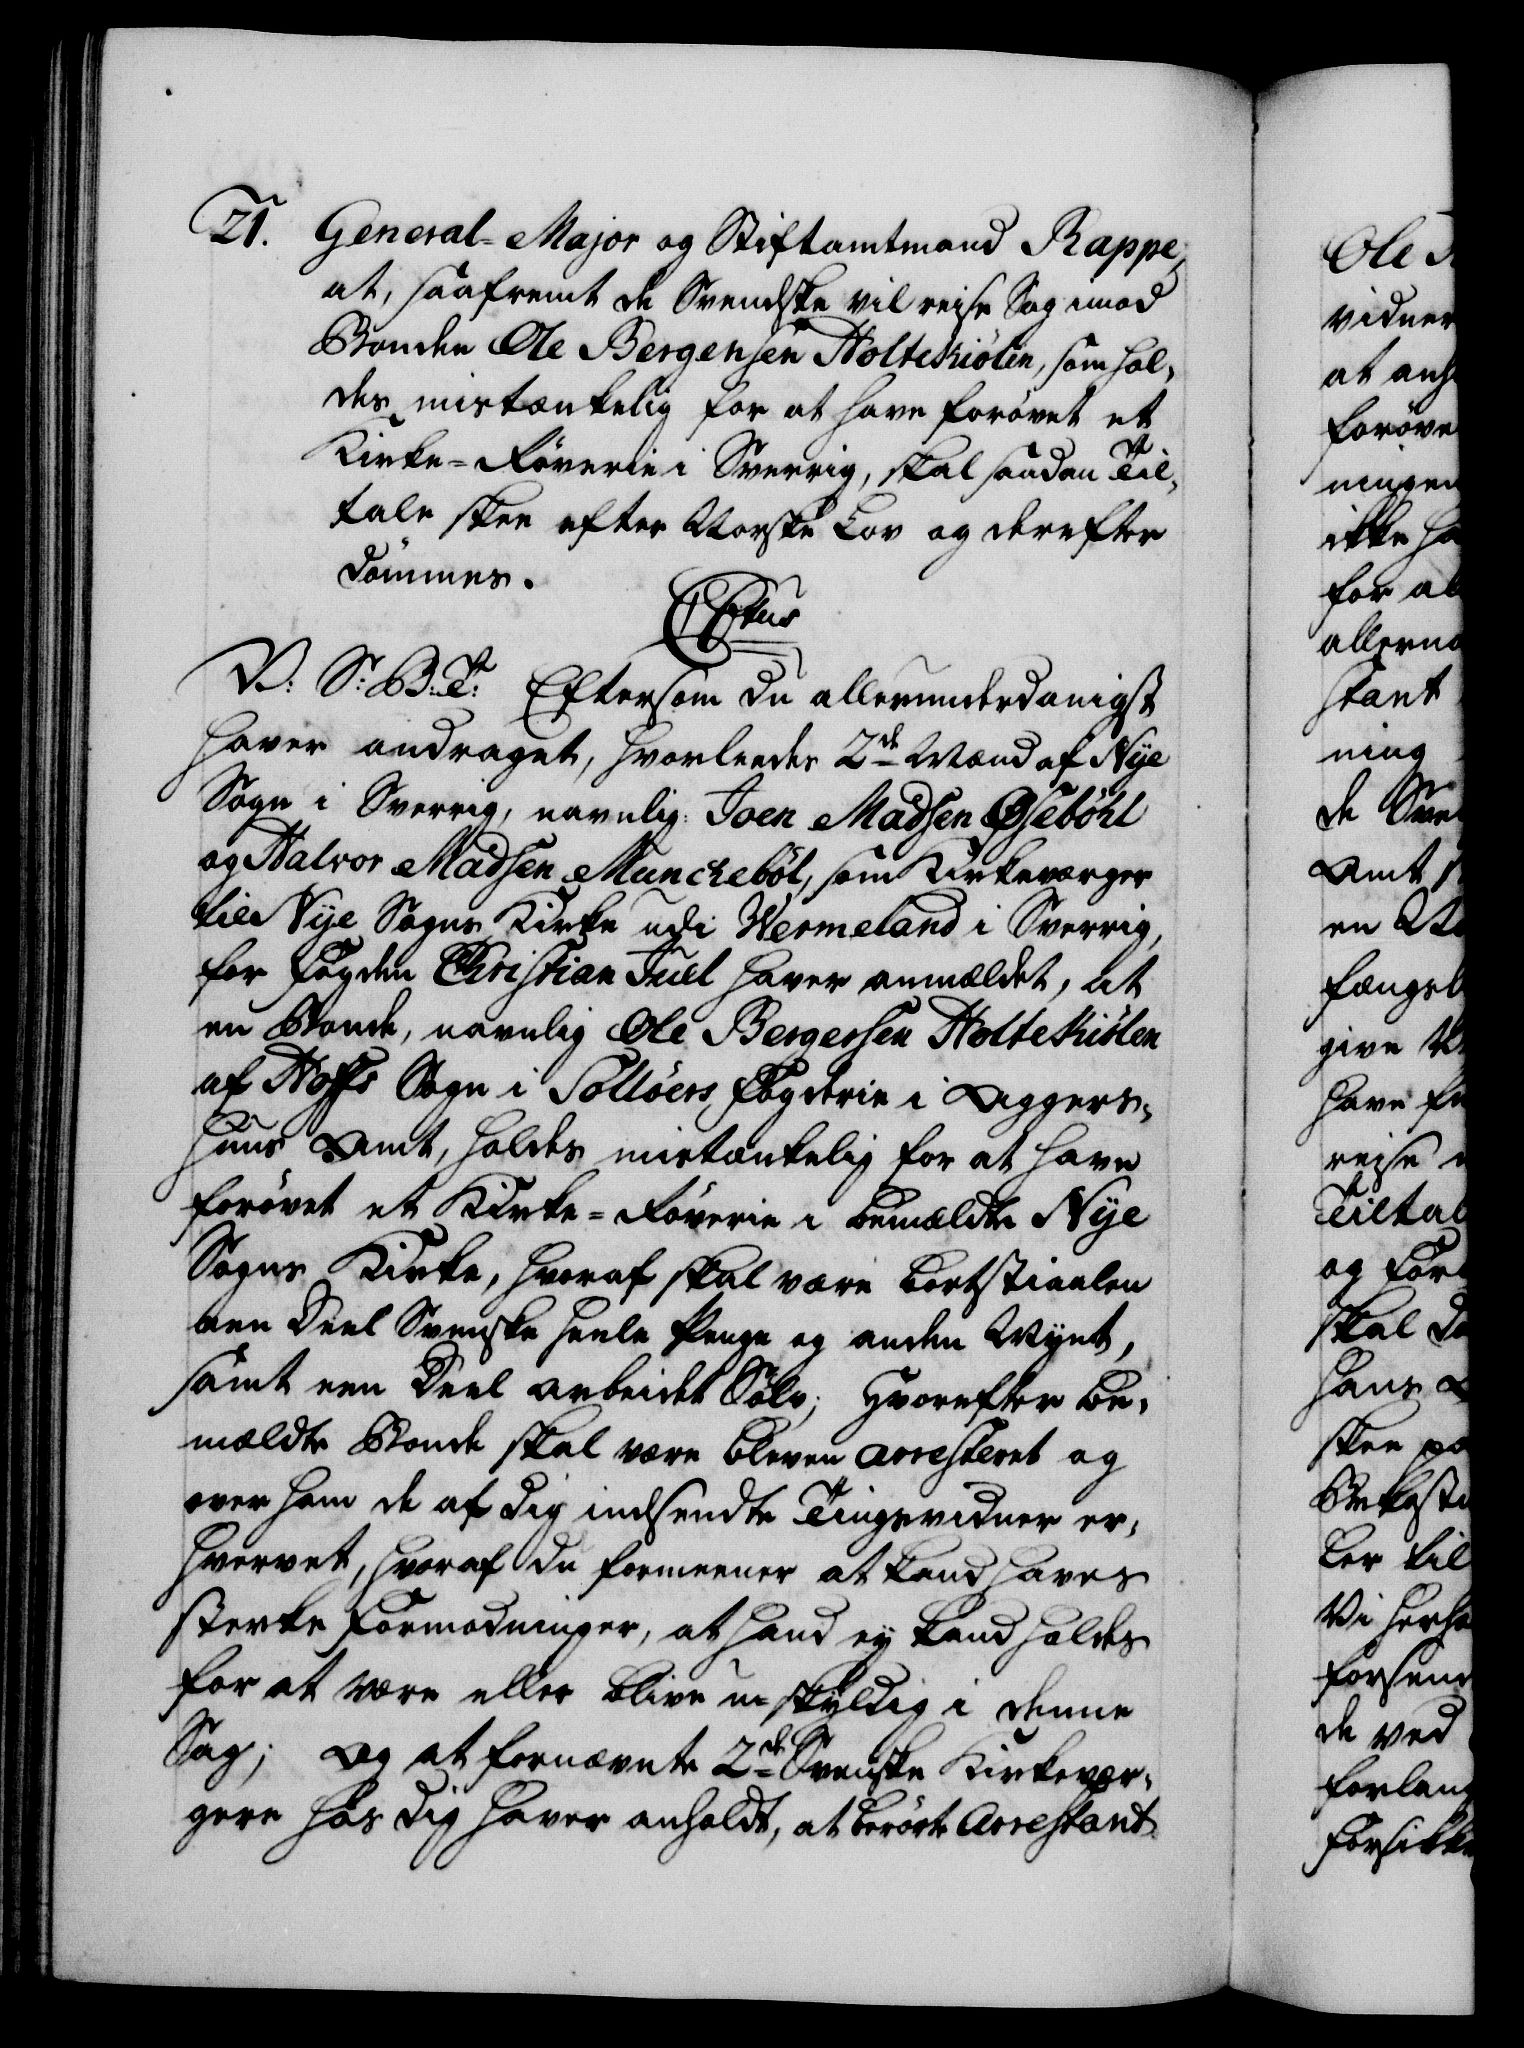 21. General-Major og Stiftamtmand Rappe,
at, saafremt de Svendske vil reise Sag imod
Bonden Ole Bergensen Holtekiölen, som hol-
des mistænkelig for at have forövet et
Kirke-Röverie i Sverrig, skal saadan Til-
tale skee efter Norske Lov og derefter
dömmes.
C6tus
V: S: B: T: Eftersom du allerunderdanigst
haver andraget, hvorleedes 2de Mænd af Nÿe
Sogn i Sverrig, navnlig: Joen Madsen Öseböhl
og Halvor Madsen Munckeböl, som Kirkeværger
till Nÿe Sogns Kirke udi Wermeland i Sverrig,
for Fogden Christian Juel haver anmældet, at
en Bonde, navnlig Ole Bergersen Holtekiölen
af Hoffs Sogn i Sollöers Fogderie i Aggers-
huus Amt, holdes mistænkelig for at have
forövet et Kirke-Röverie i bemældte Nÿe
Sogns Kirke, hvoraf skal være bortstiaalen
een Deel Svenske heele Penge og anden Mÿnt,
samt een Deel arbeidet Sölv; Hvorefter be-
mældte Bonde skal være bleven arresteret og
over ham de af dig indsendte Tingsvidner er-
hvervet, hvoraf du formeener at kand haves
sterke Formodninger, at hand eÿ kand holdes
for at være eller blive u-skÿldig i denne
Sag; Og at fornævnte 2de Svenske Kirkevær-
gere hos dig haver anholdt, at berörte Arrestant
Ole
vidner
at anh
foröve
ningen
ikke ha
for al
allerna
stant
ning
de Sve
Amt
en
fængsl
give
have
reise
Tiltal
og For
skal
hans
skee
Bekosti
ler til
Vi herho
forsend
de ved
forlang
Forsikk